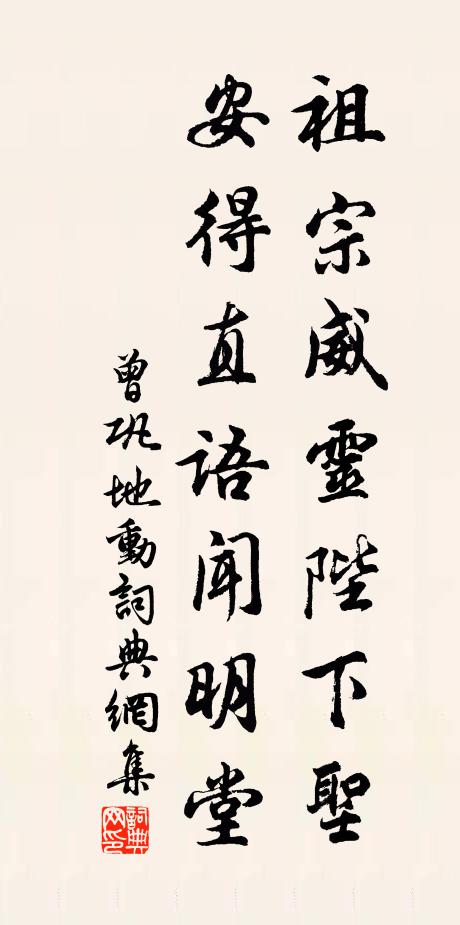 祖宗威靈陛下聖
安得直語聞明堂
曾巩地動詞典網集
詞典网印